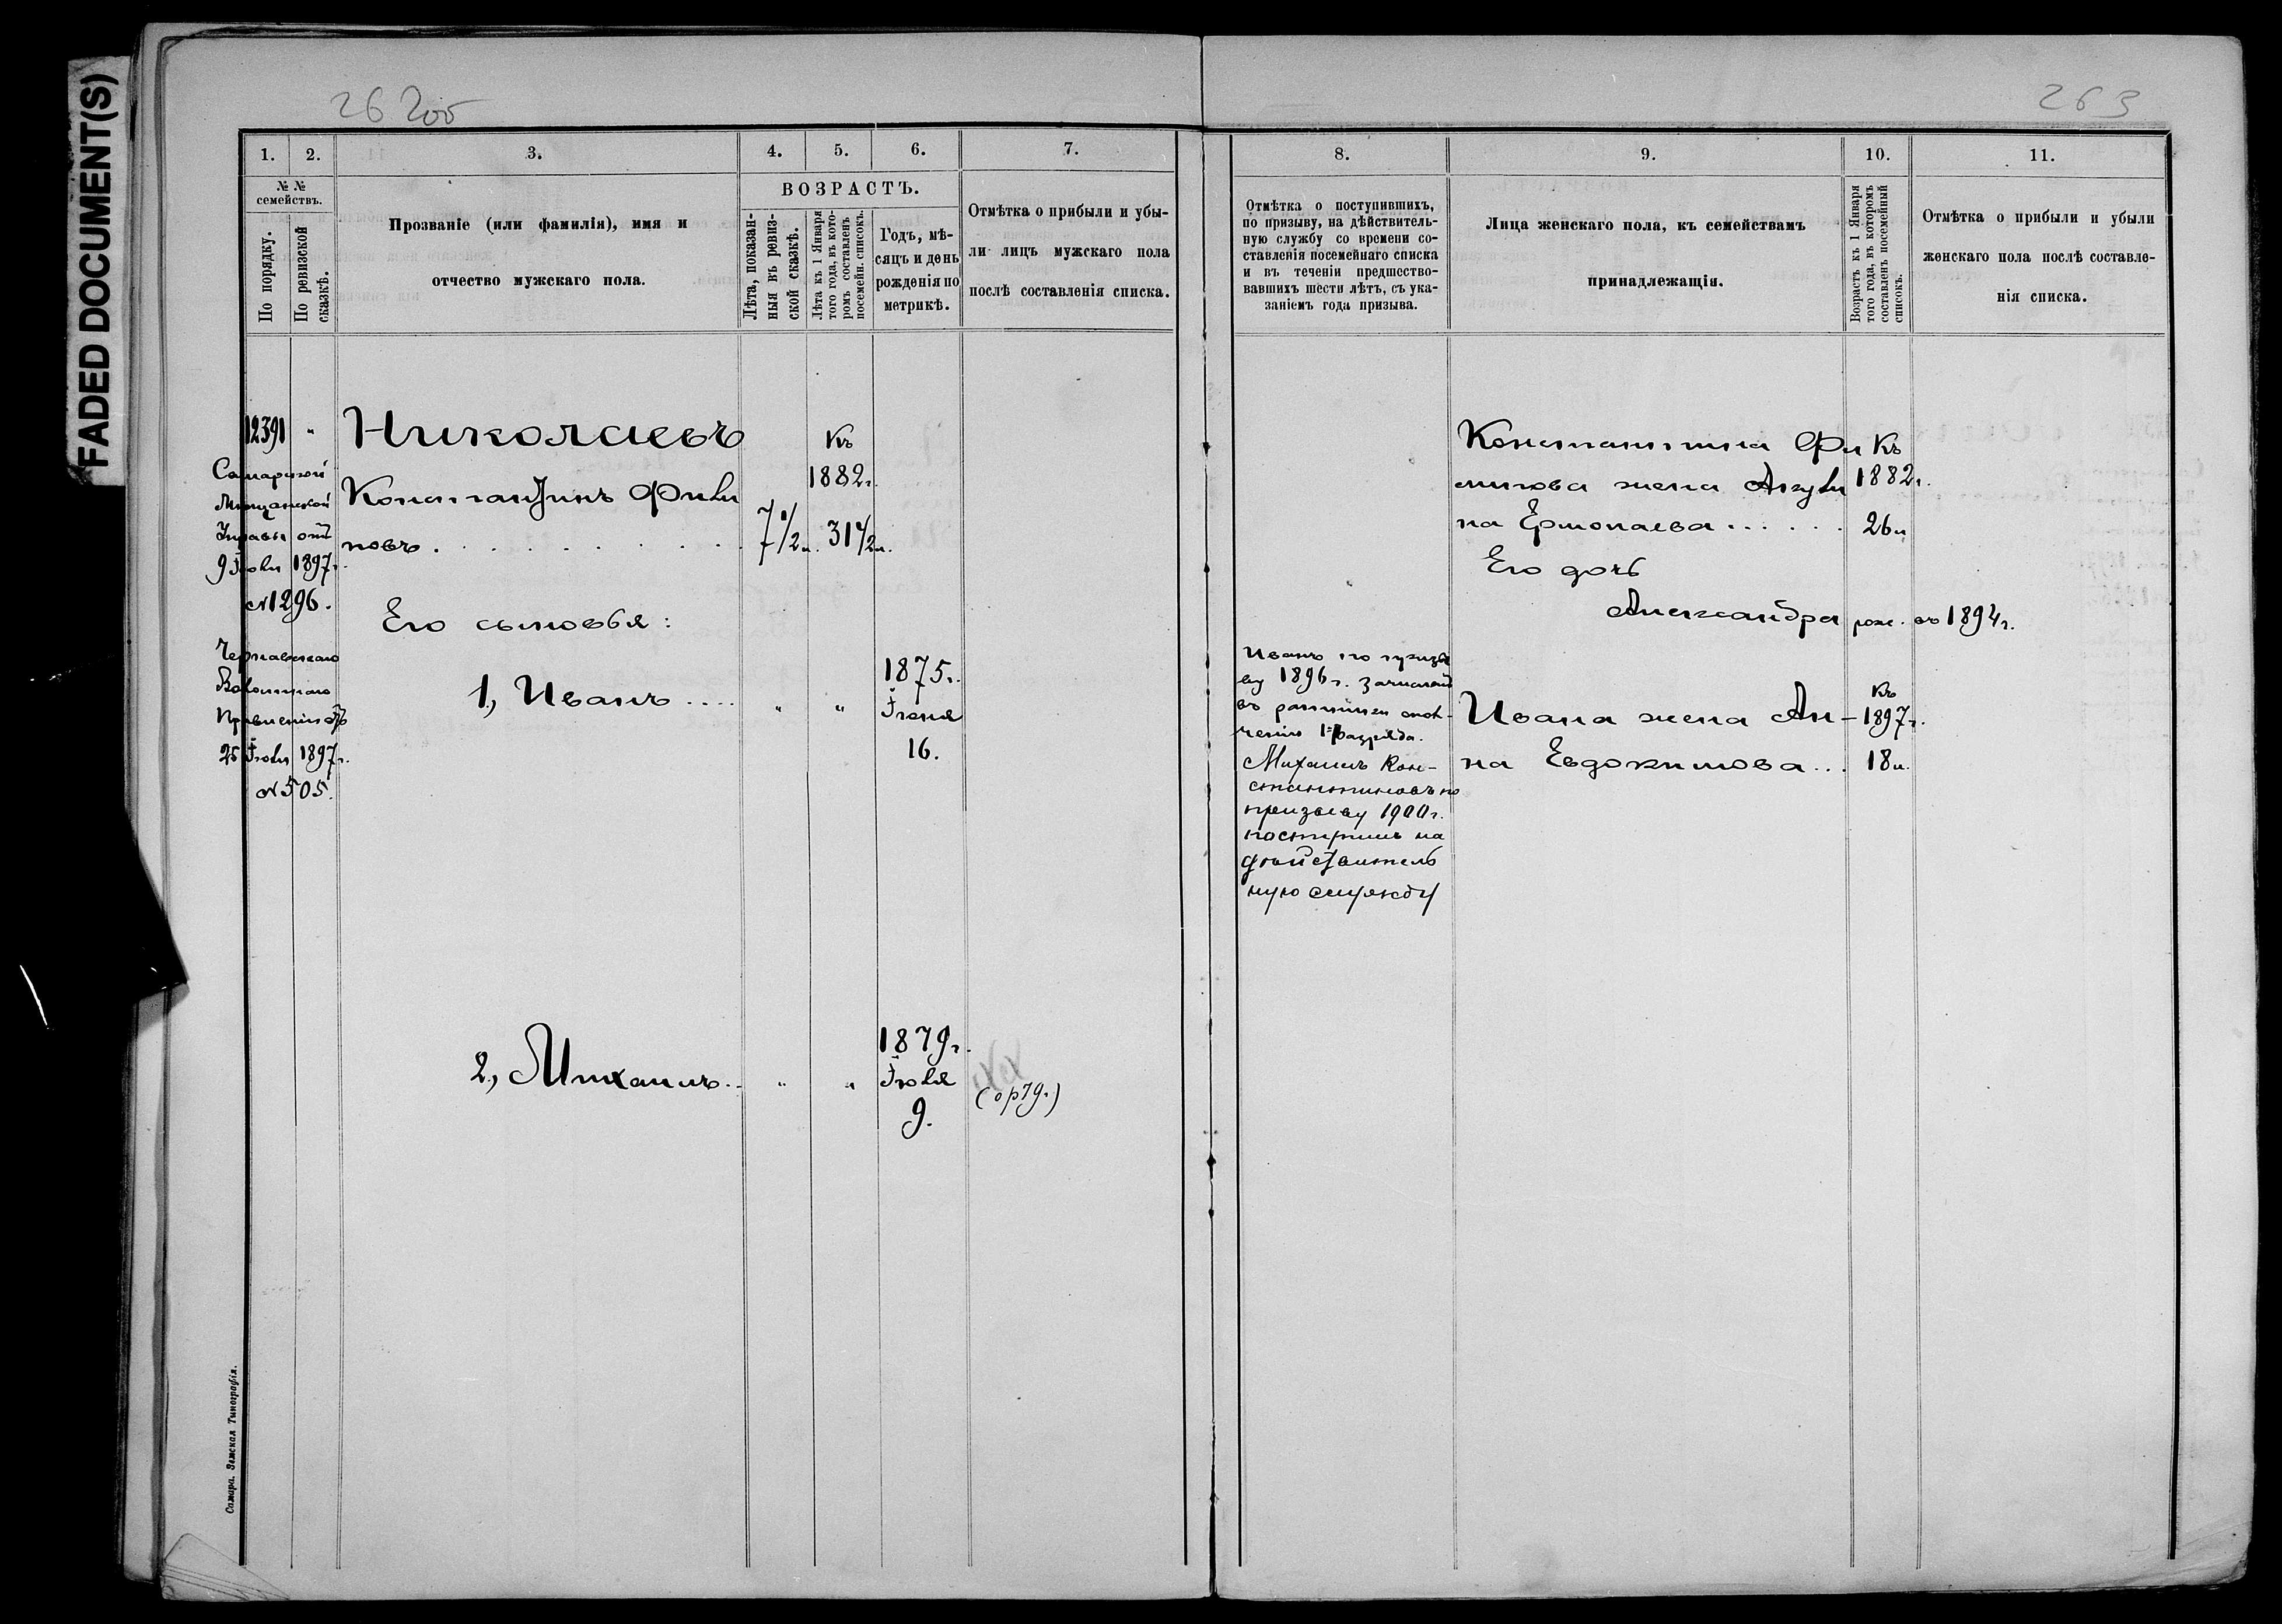 FADED DOCUMENT(S)
26 2об
263
1.
2.
3.
4.
5.
6.
7.
№ №
семействъ.
По порядку.
По ревизской
сказкѣ.
Прозваніе (или фамилія), имя и
отчество мужскаго пола.
ВОЗРАСТЪ.
Лѣта, показан-
ныя въ ревиз-
ской сказкѣ.
Лѣта къ 1 Января
того года, въ кото-
ромъ составленъ
посемейн. списокъ.
Годъ, мѣ-
сяцъ и день
рожденія по
метрикѣ.
Отмѣтка о прибыли и убы-
ли лицъ мужскаго пола
послѣ составленія списка.
12391 "
Самарской
Мѣщанской
Управы отъ
9 Іюля 1897г.
№1296.
Чернавскаго
Волостнаго
Правленія отъ
25 Іюля 1897г.
№505.
Николаевъ
Константинъ Фили
повъ
7 1/2 л.
Къ
1882г.
31 1/2 л.
Его сыновья:
1, Иванъ .... " "
1875г.
Іюня
16.
2, Михаилъ.. " "
1879г.
Іюля
9.
(ор79.)
Самара. Земская Типографія.
8.
9.
10.
11.
Отмѣтка о поступившихъ,
по призыву, на дѣйствитель-
ную службу со времени со-
ставленія посемейнаго списка
и въ теченіи предшество-
вавшихъ шести лѣтъ, съ ука-
заніемъ года призыва.
Лица женскаго пола, къ семействамъ
принадлежащія.
Возрастъ къ 1 Января
того года, въ которомъ
составленъ посемейный
списокъ.
Отмѣтка о прибыли и убыли
женскаго пола послѣ составле-
нія списка.
Константина Фи
липова жена Акули
на Ермолаева ......
Къ
1882г.
26л
Его дочь
Александра рожд. въ 1894г.
Иванъ по призы
ву 1896г. зачисленъ
въ ратники опол-
ченія 1го разряда.
Михаилъ Кон-
стантиновъ по
призыву 1900г.
поступилъ на
дѣйствитель
ную службу
Ивана жена Ан-
на Евдокимова...
Къ
1897г.
18л.